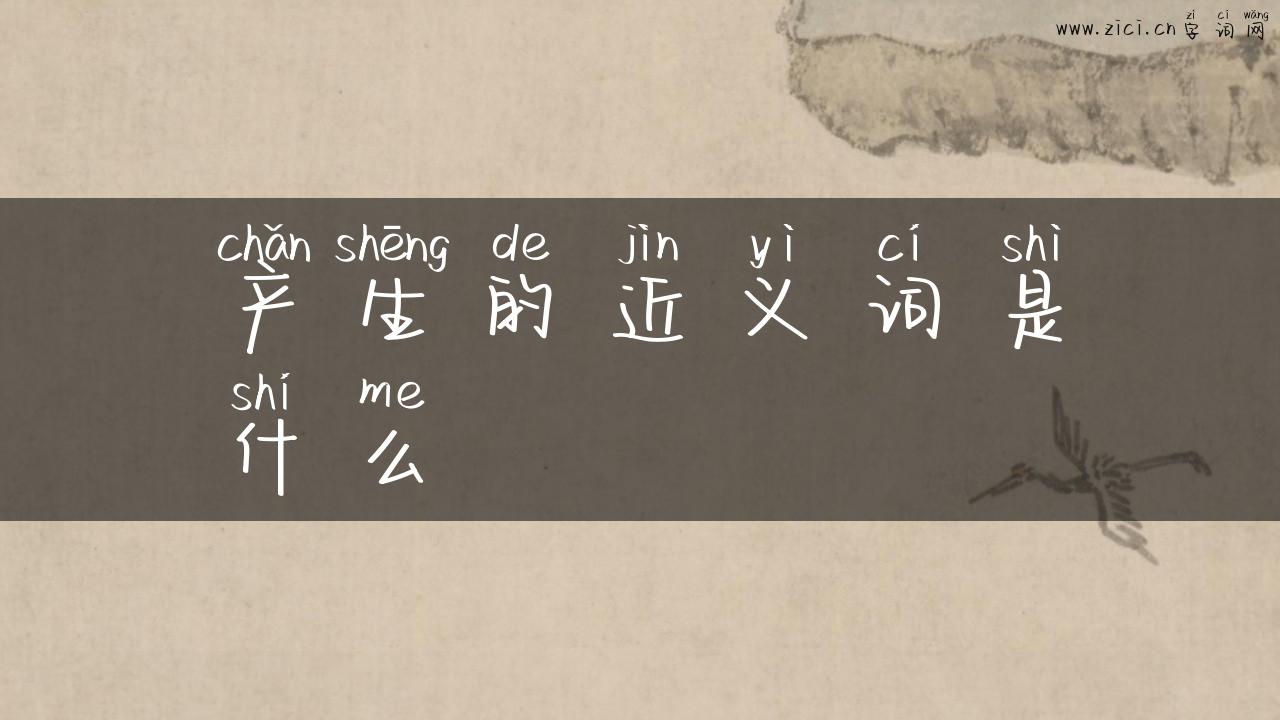 zì cí wǎng
www.zici.cn 字词网
chǎn shēng de jìn yì cí shì
产生的近义词是
shí me
什么